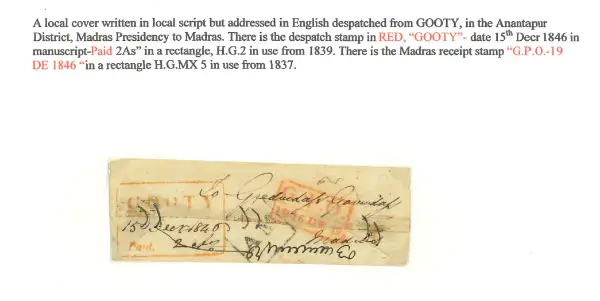 A local cover written in local script but addressed in English despatched from GOOTY, in the Anantapur
District, Madras Presidency to Madras. There is the despatch stamp in RED, “GOOTY”- date 15th Decr 1846 in
manuscript-Paid 2As” in a rectangle, H.G.2 in use from 1839. There is the Madras receipt stamp “G.P.O.-19
DE 1846 “in a rectangle H.G.MX 5 in use from 1837.
GOOTY
To
15 Decr 1846
Paid.
Madras